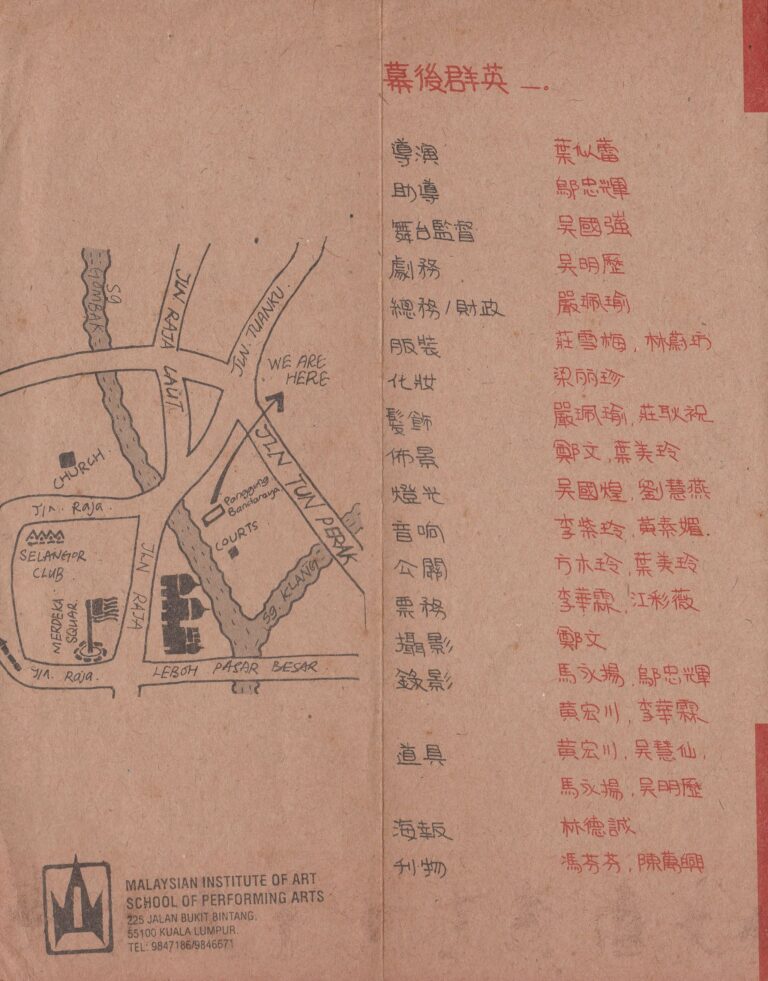 SG GOMBAK
JLN RAJA LAUT.
JLN. TUANKU.
WE ARE
HERE
CHURCH.
JLN TUN PERAK
Panggung
Bandaraya
COURTS
Jln. Raja.
SELANGOR
CLUB
MERDEKA
SQUAR
JLN RAJA
SG. KLANG
Jln. Raja.
LEBOH PASAR BESAR
MALAYSIAN INSTITUTE OF ART
SCHOOL OF PERFORMING ARTS
225 JALAN BUKIT BINTANG.
55100 KUALA LUMPUR.
TEL: 9847186/9846671
幕後群英 —。
導演 葉似蕾
助導 鄔忠輝
舞台監督 吴國強
劇務 吴明歷
總務/財政 嚴珮瑜
服裝 莊雪梅, 林蔚玏
化妝 梁丽珍
髮飾 嚴珮瑜, 莊耿祝
佈景 鄭文, 葉美玲
燈光 吴國煌, 劉慧燕
音响 李紫玲, 黃泰媚.
公關 方木玲, 葉美玲
票務 李華霖, 江彩薇
攝影 鄭文
錄影 馬永揚, 鄔忠輝
黃宏川, 李華霖
道具 黃宏川, 吴慧仙,
馬永揚, 吴明歷
海報 林德誠
刊物 馮芬芬, 陳萬興